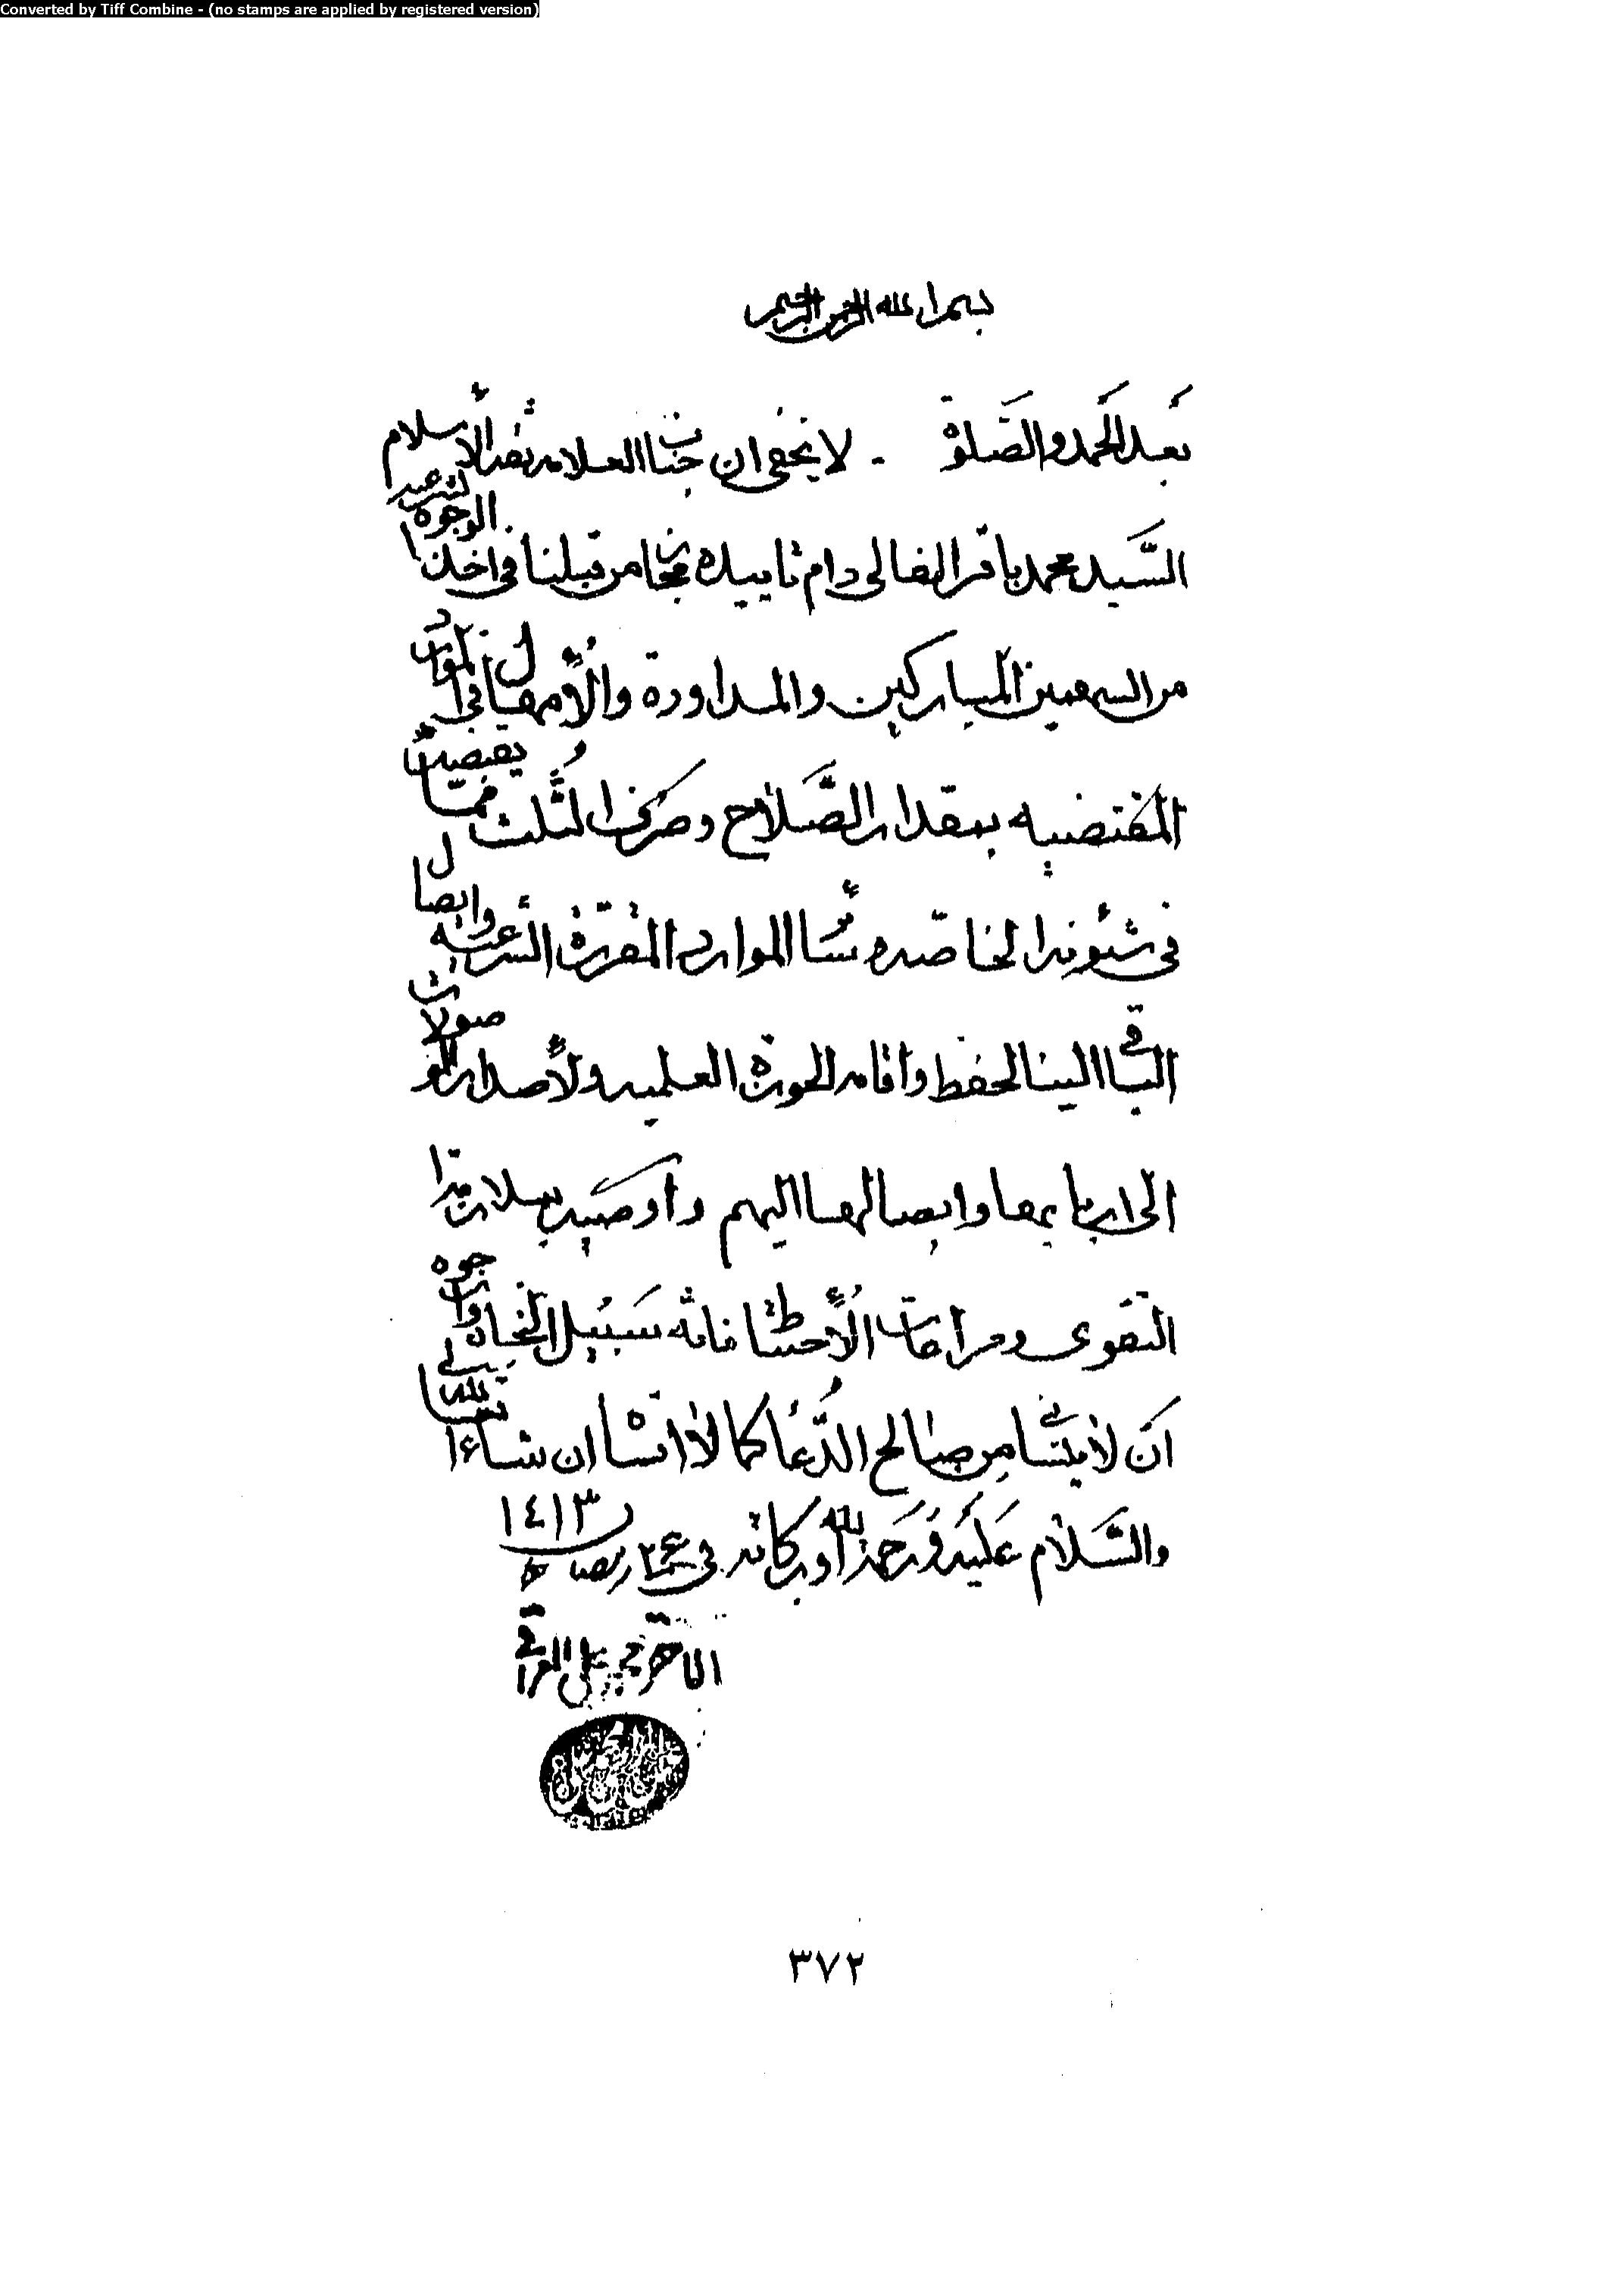 Converted by Tiff Combine - (no stamps are applied by registered version)
بسم الله الرحمن الرحيم
بعد الحمد والصلوة - لا يخفى ان جناب العلامه ثقة الاسلام
السيد محمد باقر الفالى دام تاييده مجاز من قبلنا فى اخذ الوجوه الشرعيه
من السهمين المباركين والمداورة والأمهال فى الموارد
المقتضيه بمقدار الصلاح وصرف الثلث مما يقبضه
فى شئونه الخاصه و سائر الموارد المقررة الشرعيه وايصال
الباقى الينا لحفظ واقامه الحوزة العلميه ولأصدار الوصولات
الى اربابها وايصالها اليهم واوصيه بملازمة
التقوى ومراعات الأحتياط فانه سبيل النجاة وارجوه
ان لا ينسانى من صالح الدعا كما لا انساه ان شاء الله تعالى
والسلام عليه ورحمة الله وبركاته فى ٢٤ رمضان ١٤١٣
الاحقر محمد على العراقى
٣٧٢